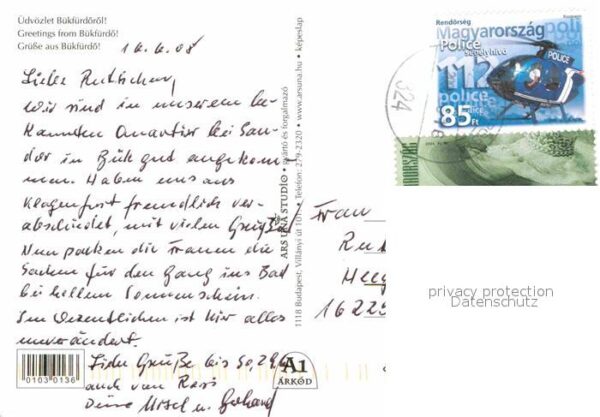 Üdvözlet Bükfürdőről!
Greetings from Bükfürdő!
Grüße aus Bükfürdő!
16.6.08
Liebe
wir sind in unserem be-
kannten Quartier bei San-
dor in Bük gut angekom-
men. Haben uns aus
Klagenfurt freundlich ver-
abschiedet, mit vielen Grüßen
Nun packen die Frauen die
Sachen für den Gang ins Bad
bei hellem Sonnenschein.
Im Wesentlichen ist hier alles
unverändert.
Liebe Grüße bis So, 29.6
auch von
Deine Ursel u. Gerhard
0103 0136
A1
ÁRKÓD
ARS UNA STUDIO • gyártó és forgalmazó
1118 Budapest, Villányi út 101. • Telefon: 279-2320 • www.arsuna.hu • képeslap
Rendőrség
Magyarország
Police
Segélyhívó
112
police
POLICE
85Ft
324
Frau
16225
privacy protection
Datenschutz